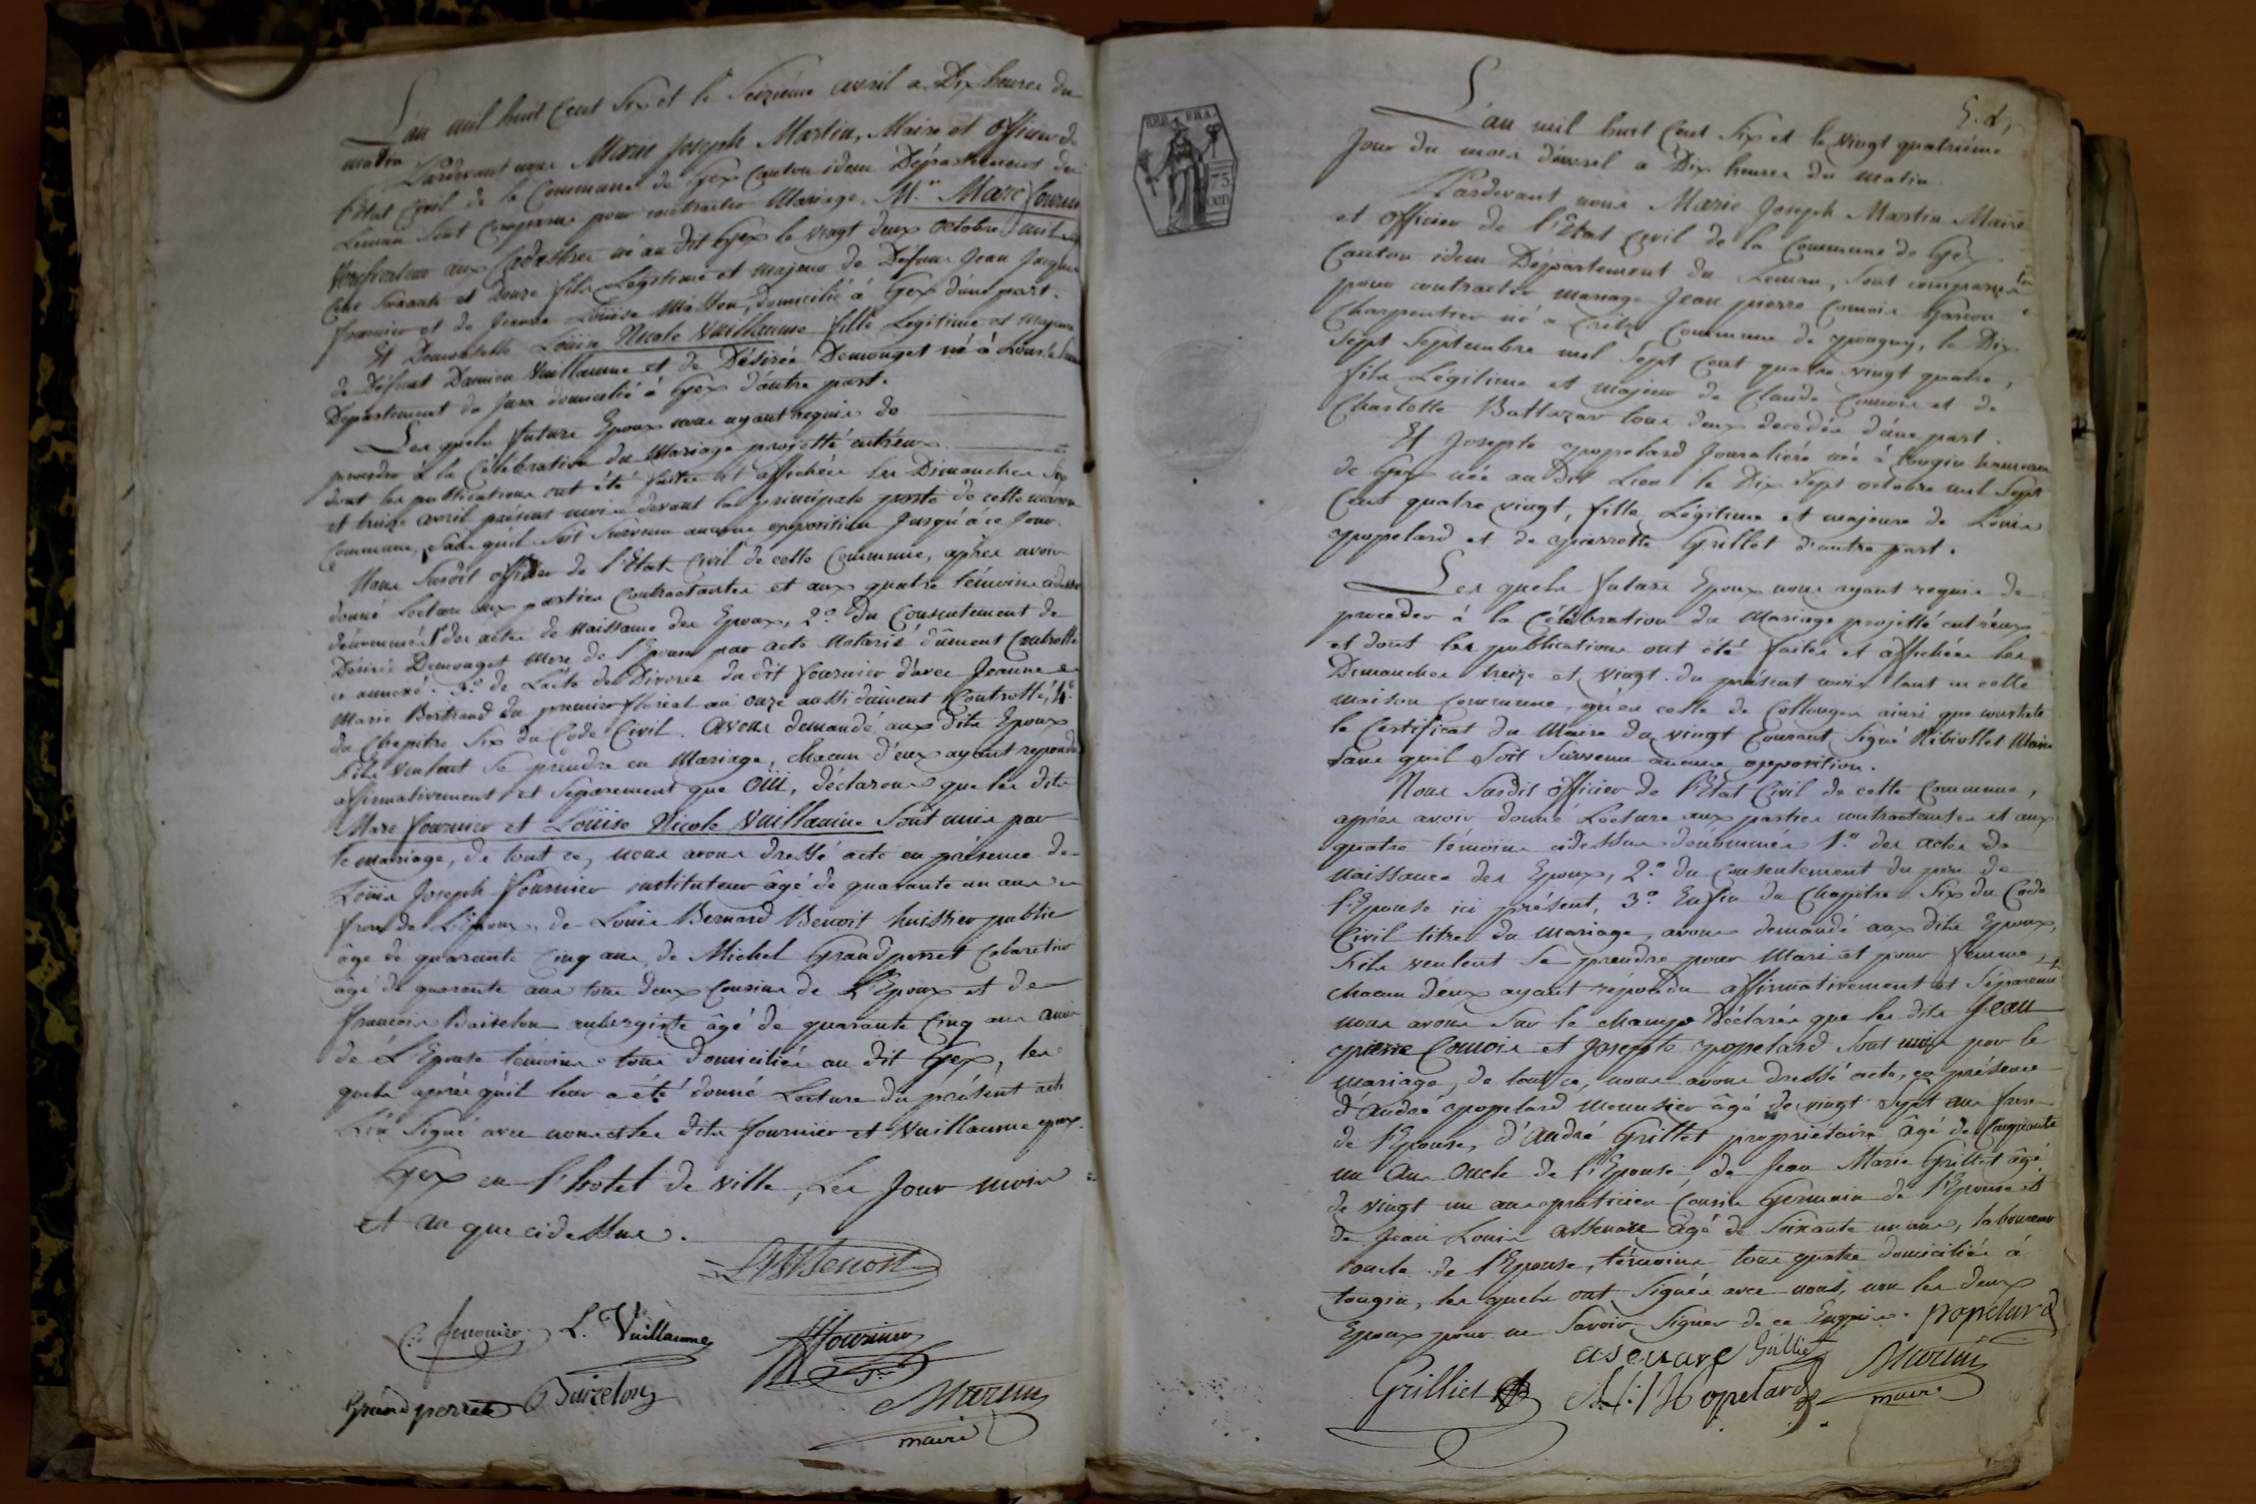 L'an mil huit Cent Six et le Seizième avril a Dix heures du
matin Pardevant nous Marie Joseph Martin, Maire et Officier de
l'Etat Civil de la Commune de Gex Canton idem Département du
Léman Sont Comparus pour contracter Mariage, Mr. Marc fournier
Vérificateur aux Cadastres né au dit Gex le vingt deux octobre mil sept
Cent Soixante et douze fils Légitime et majeur de Défunt Jean Jacques
fournier et de Jeanne Louise domicilié à Gex d'une part.
Et Demoiselle Louise Nicole Vuillaume fille Legitime et majeure
de Défunt Damien Vuillaume et de Désirée Demouget né à
Departement du Jura domicilié à Gex d'autre part.
Les quels futurs Epoux nous ayant requis de
proceder à la Célébration du Mariage projetté entr'eux
dont les publications ont été faites et affichées les Dimanches Six
et treize avril présent mois devant la principale porte de cette maison
Commune, Sans qu'il Soit Survenu aucune opposition Jusqu'à ce Jour.
Nous Susdit officier de l'Etat Civil de cette Commune, après avoir
donné Lecture aux parties Contractantes et aux quatre témoins
dénommés 1° des actes de naissance des Epoux, 2°. du Consentement de
Désirée Demouget Mere de l'Epouse par acte Notarié dûment Controllé
ci annexé. 3°. de L'acte de Divorce du dit fournier d'avec Jeanne
Marie Bertrand du premier floréal an onze aussi dûment Controllé, 4°.
du Chapitre Six du Code Civil. avons demandé aux dits Epoux
S'ils veulent Se prendre en Mariage, chacun d'eux ayant repondu
affirmativement et Separement que Oüi, déclarons que les dits
Marc fournier et Louise Nicole Vuillaume Sont unis par
le mariage, de tout ce, nous avons dressé acte en présence de
Louis Joseph fournier instituteur âgé de quarante un ans
frere de L'Epoux, de Louis Bernard Benoit huissier public
âgé de quarante Cinq ans, de Michel Grandperret Cabaretier
âgé de quarante ans tous deux Cousins de L'Epoux et de
francois Baizelon aubergiste âgé de quarante Cinq ans ami
de L'Epouse témoins tous domiciliés au dit Gex, les
quels après qu'il leur a eté donné Lecture du présent acte
L'on Signé avec nous et les dits fournier et Vuillaume epoux.
Gex en l'hotel de ville, Les Jour mois
et an que cidessus.
LB Benoit
fournier L. Vuillaume fournier
Grandperret Baizelon Martin
maire
L'an mil huit Cent Six et le vingt quatrième
Jour du mois d'avril a Dix heures du matin
REP. FRA.
75
CEN
Pardevant nous Marie Joseph Martin Maire
et officier de l'Etat Civil de la Commune de Gex
Canton idem Département du Leman, Sont comparus
pour contracter mariage Jean pierre Comoir Garcon
Charpentier né a Commune de pougny, le Dix
Sept Septembre mil Sept Cent quatre vingt quatre,
fils Légitime et majeur de Claude Comoir et de
Charlotte Baltazar tous deux decedés d'une part.
Et Josephte popelard Journaliere née à tougin hameau
de Gex née au Dit Lieu le Dix Sept octobre mil Sept
Cent quatre vingt, fille Légitime et majeure de Louis
popelard et de pierrette Grillet d'autre part.
Les quels futurs Epoux nous ayant requis de
proceder à la Célébration du Mariage projetté entr'eux
et dont les publications ont été faites et affichées les
Dimanches treize et vingt du présent mois tant en cette
maison Commune, qu'en celle de Collonges ainsi que constate
le Certificat du Maire du vingt Courant Signé Maire
Sans quil Soit Survenu aucune opposition.
Nous Susdit officier de l'Etat Civil de cette Commune,
après avoir donné Lecture aux parties contractantes et aux
quatre témoins cidessus dénommés 1°. des actes de
naissance des Epoux, 2°. du Consentement du père de
l'Epouse ici présent, 3°. Enfin du Chapitre Six du Code
Civil titre du mariage, avons demandé aux dits Epoux,
S'ils veulent Se prendre pour Mari et pour femme,
chacun d'eux ayant répondu affirmativement et Séparement
nous avons Sur le champ Déclarés que les dits Jean
pierre Comoir et Josephte popelard Sont unis par le
mariage, de tout ce, nous avons dressé acte, en présence
d'andré popelard Menusier âgé de vingt Sept ans frere
de l'Epouse, d'andré Grillet propriétaire âgé de Cinquante
un ans oncle de l'Epouse, de Jean Marie Grillet âgé
de vingt un ans praticien Cousin Germain de l'Epouse et
de Jean Louis assenare âgé de Soixante un ans, laboureur
oncle de l'Epouse, témoins tous quatre domiciliés à
tougin, les quels ont Signés avec nous, non les deux
Epoux pour ne Savoir Signer de ce Enquis. popelard
asenare Grilliet Martin
Grilliet popelard maire